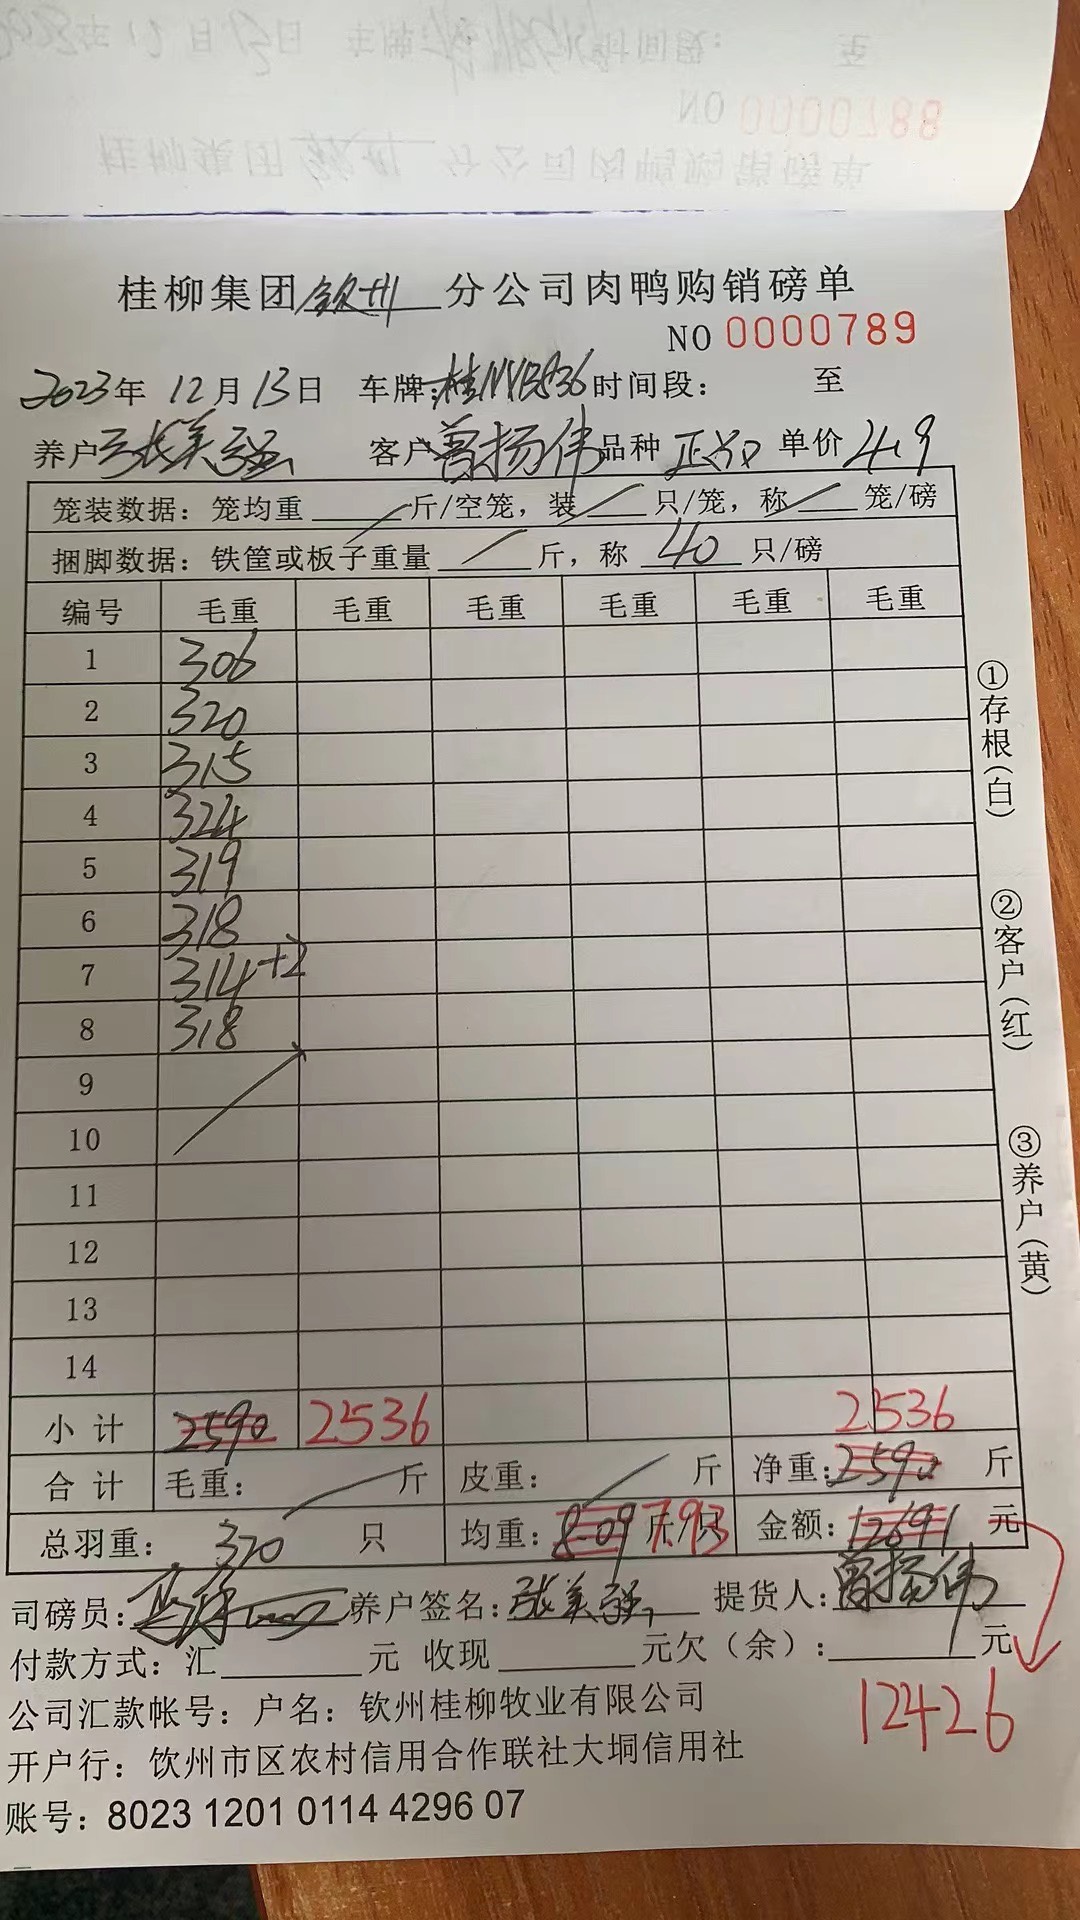 NO 0000788
桂柳集团钦州分公司肉鸭购销磅单
NO 0000789
2023年 12月13日 车牌:桂 时间段: 至
养户 张美强 客户 曾扬伟 品种 单价 4.9
笼装数据: 笼均重 斤/空笼, 装 只/笼, 称 笼/磅
捆脚数据: 铁筐或板子重量 斤, 称 40 只/磅
编号 毛重 毛重 毛重 毛重 毛重 毛重
1 306
2 320
3 315
4 324
5 319
6 318
7 314+2
8 318
9
10
11
12
13
14
小计 2590 2536 2536
合计 毛重: 斤 皮重: 斤 净重: 2590 斤
总羽重: 320 只 均重: 8.09 7.93 金额: 12691 元
司磅员: 养户签名: 张美强 提货人: 曾扬伟
付款方式: 汇 元 收现 元欠(余): 元
12426
公司汇款帐号: 户名: 钦州桂柳牧业有限公司
开户行: 饮州市区农村信用合作联社大垌信用社
账号: 8023 1201 0114 4296 07
①存根(白)
②客户(红)
③养户(黄)